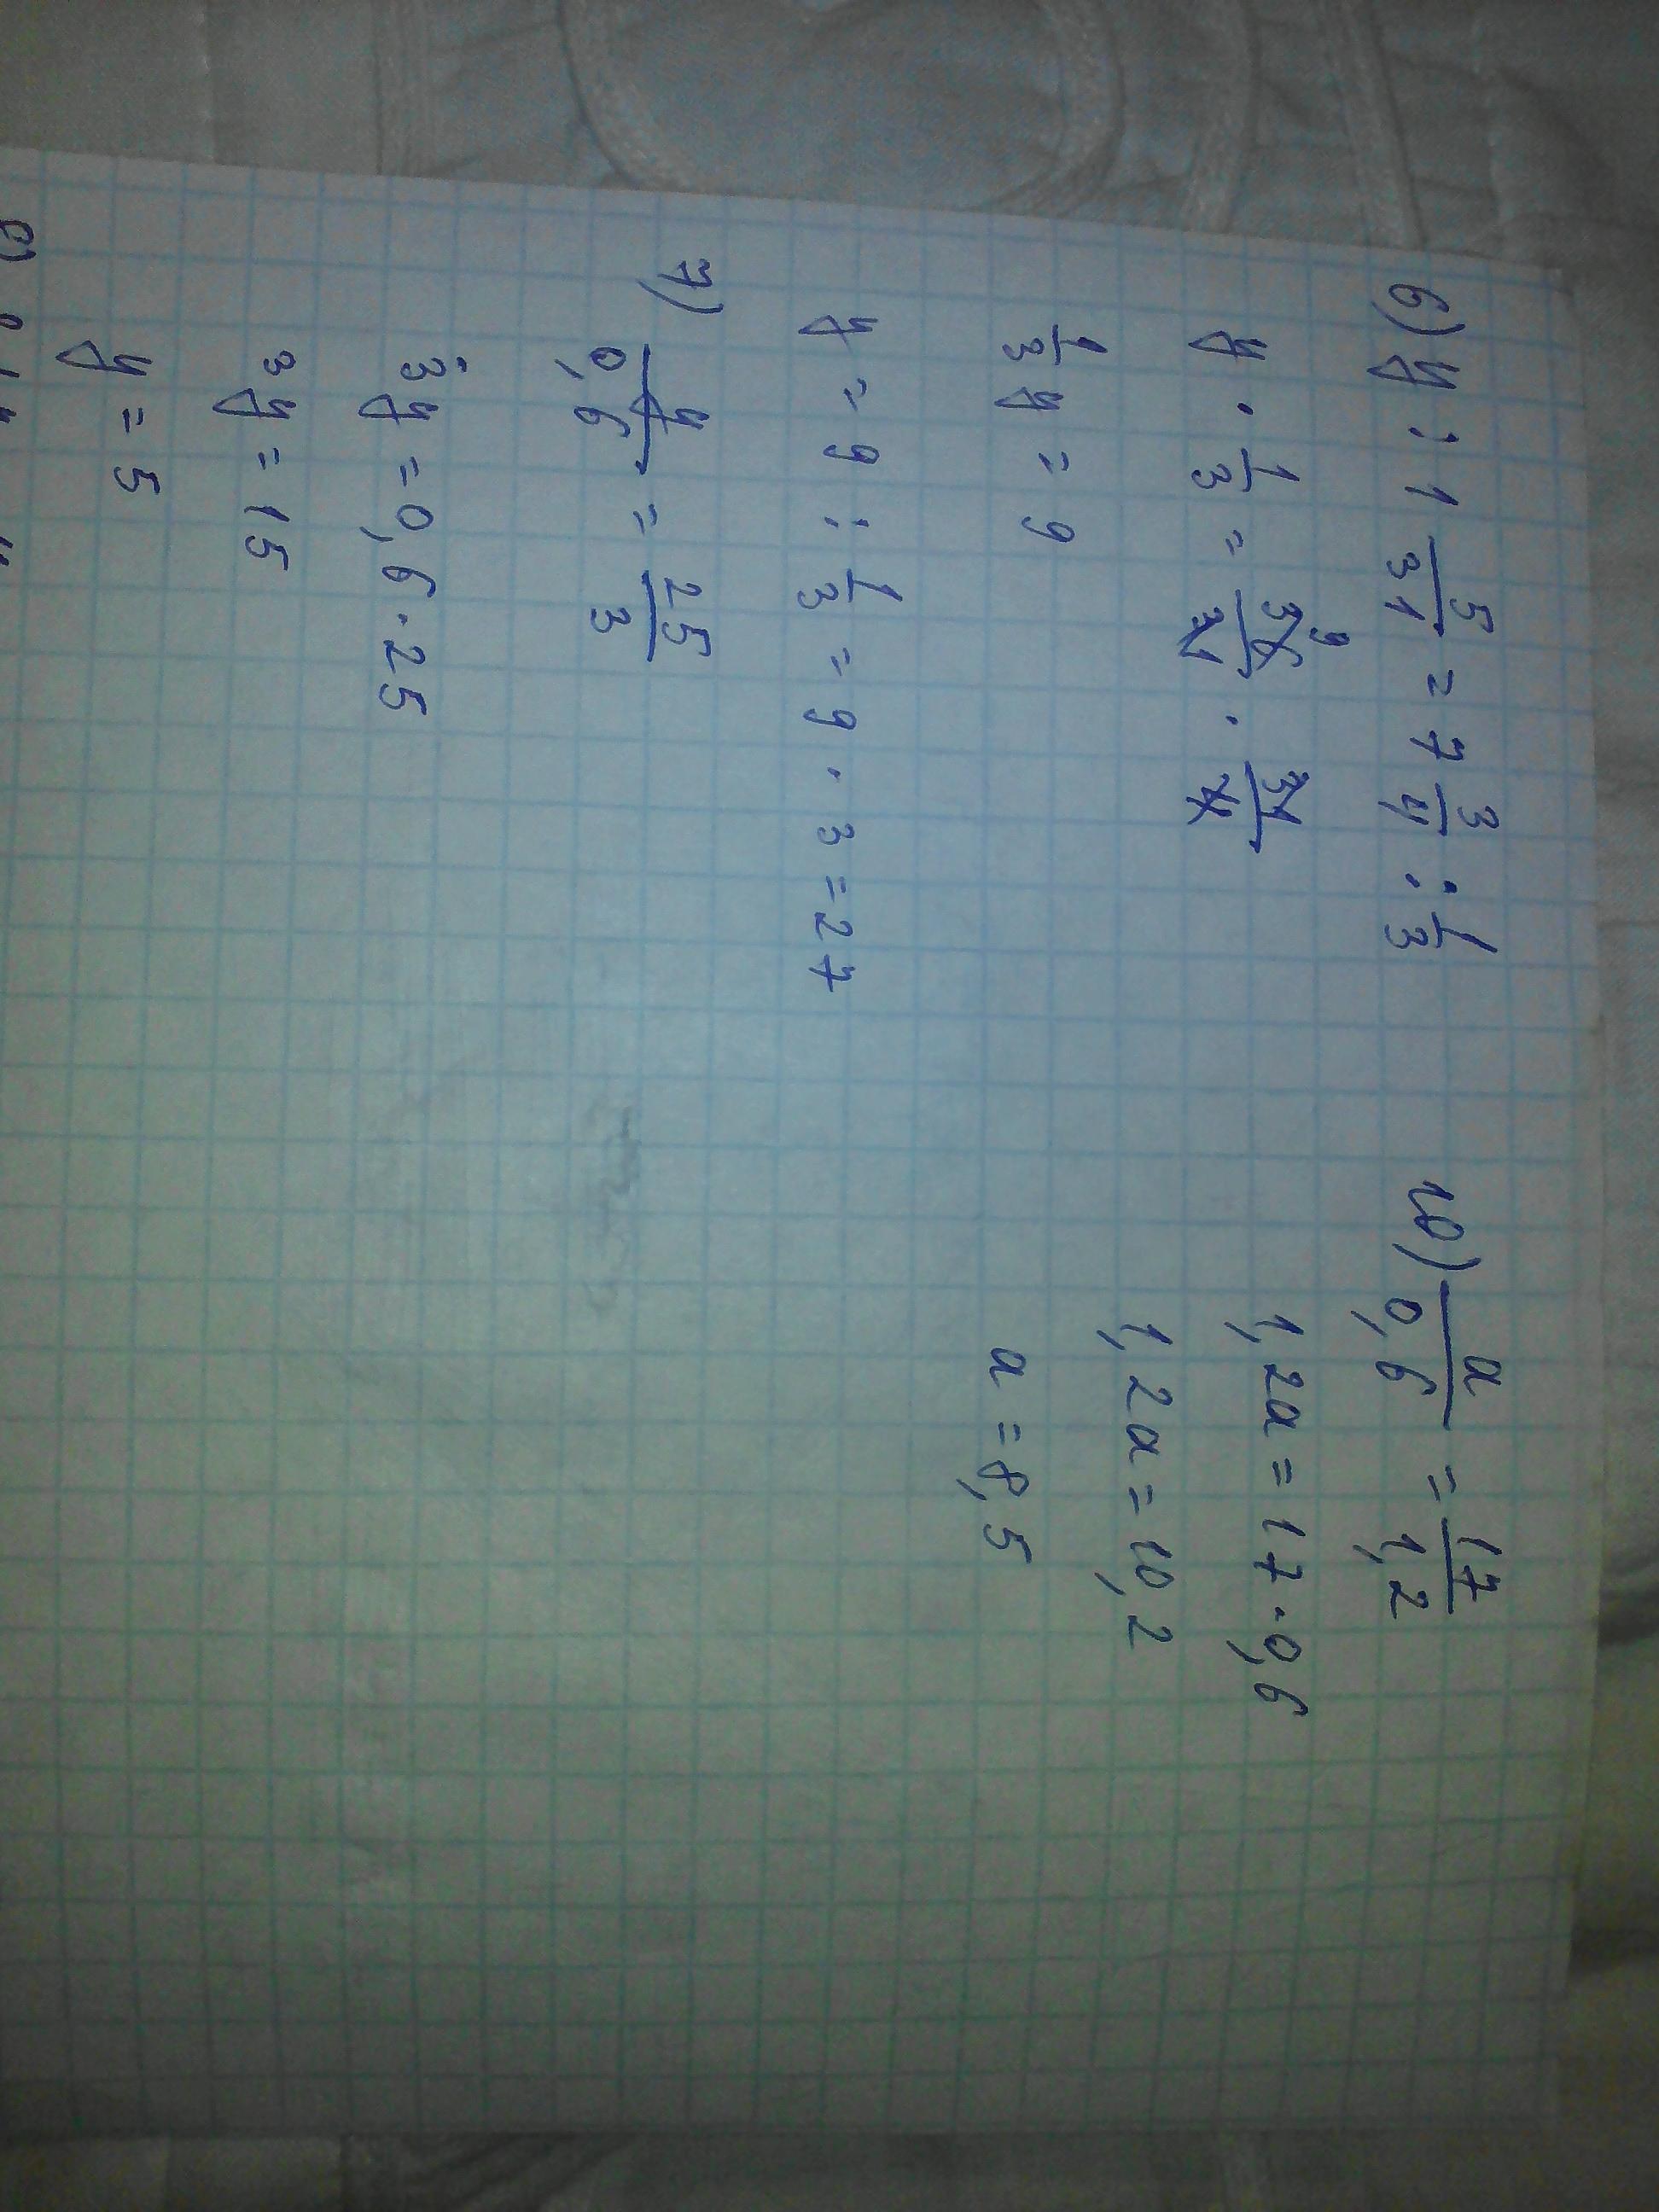 6) y : 1 5/31 = 7 3/4 : 1/3
y · 1/3 = 36/31 · 31/4
1/3 y = 9
y = 9 : 1/3 = 9 · 3 = 27
7) y/0,6 = 25/3
3y = 0,6 · 25
3y = 15
y = 5
10) a/0,6 = 17/1,2
1,2a = 17 · 0,6
1,2a = 10,2
a = 8,5